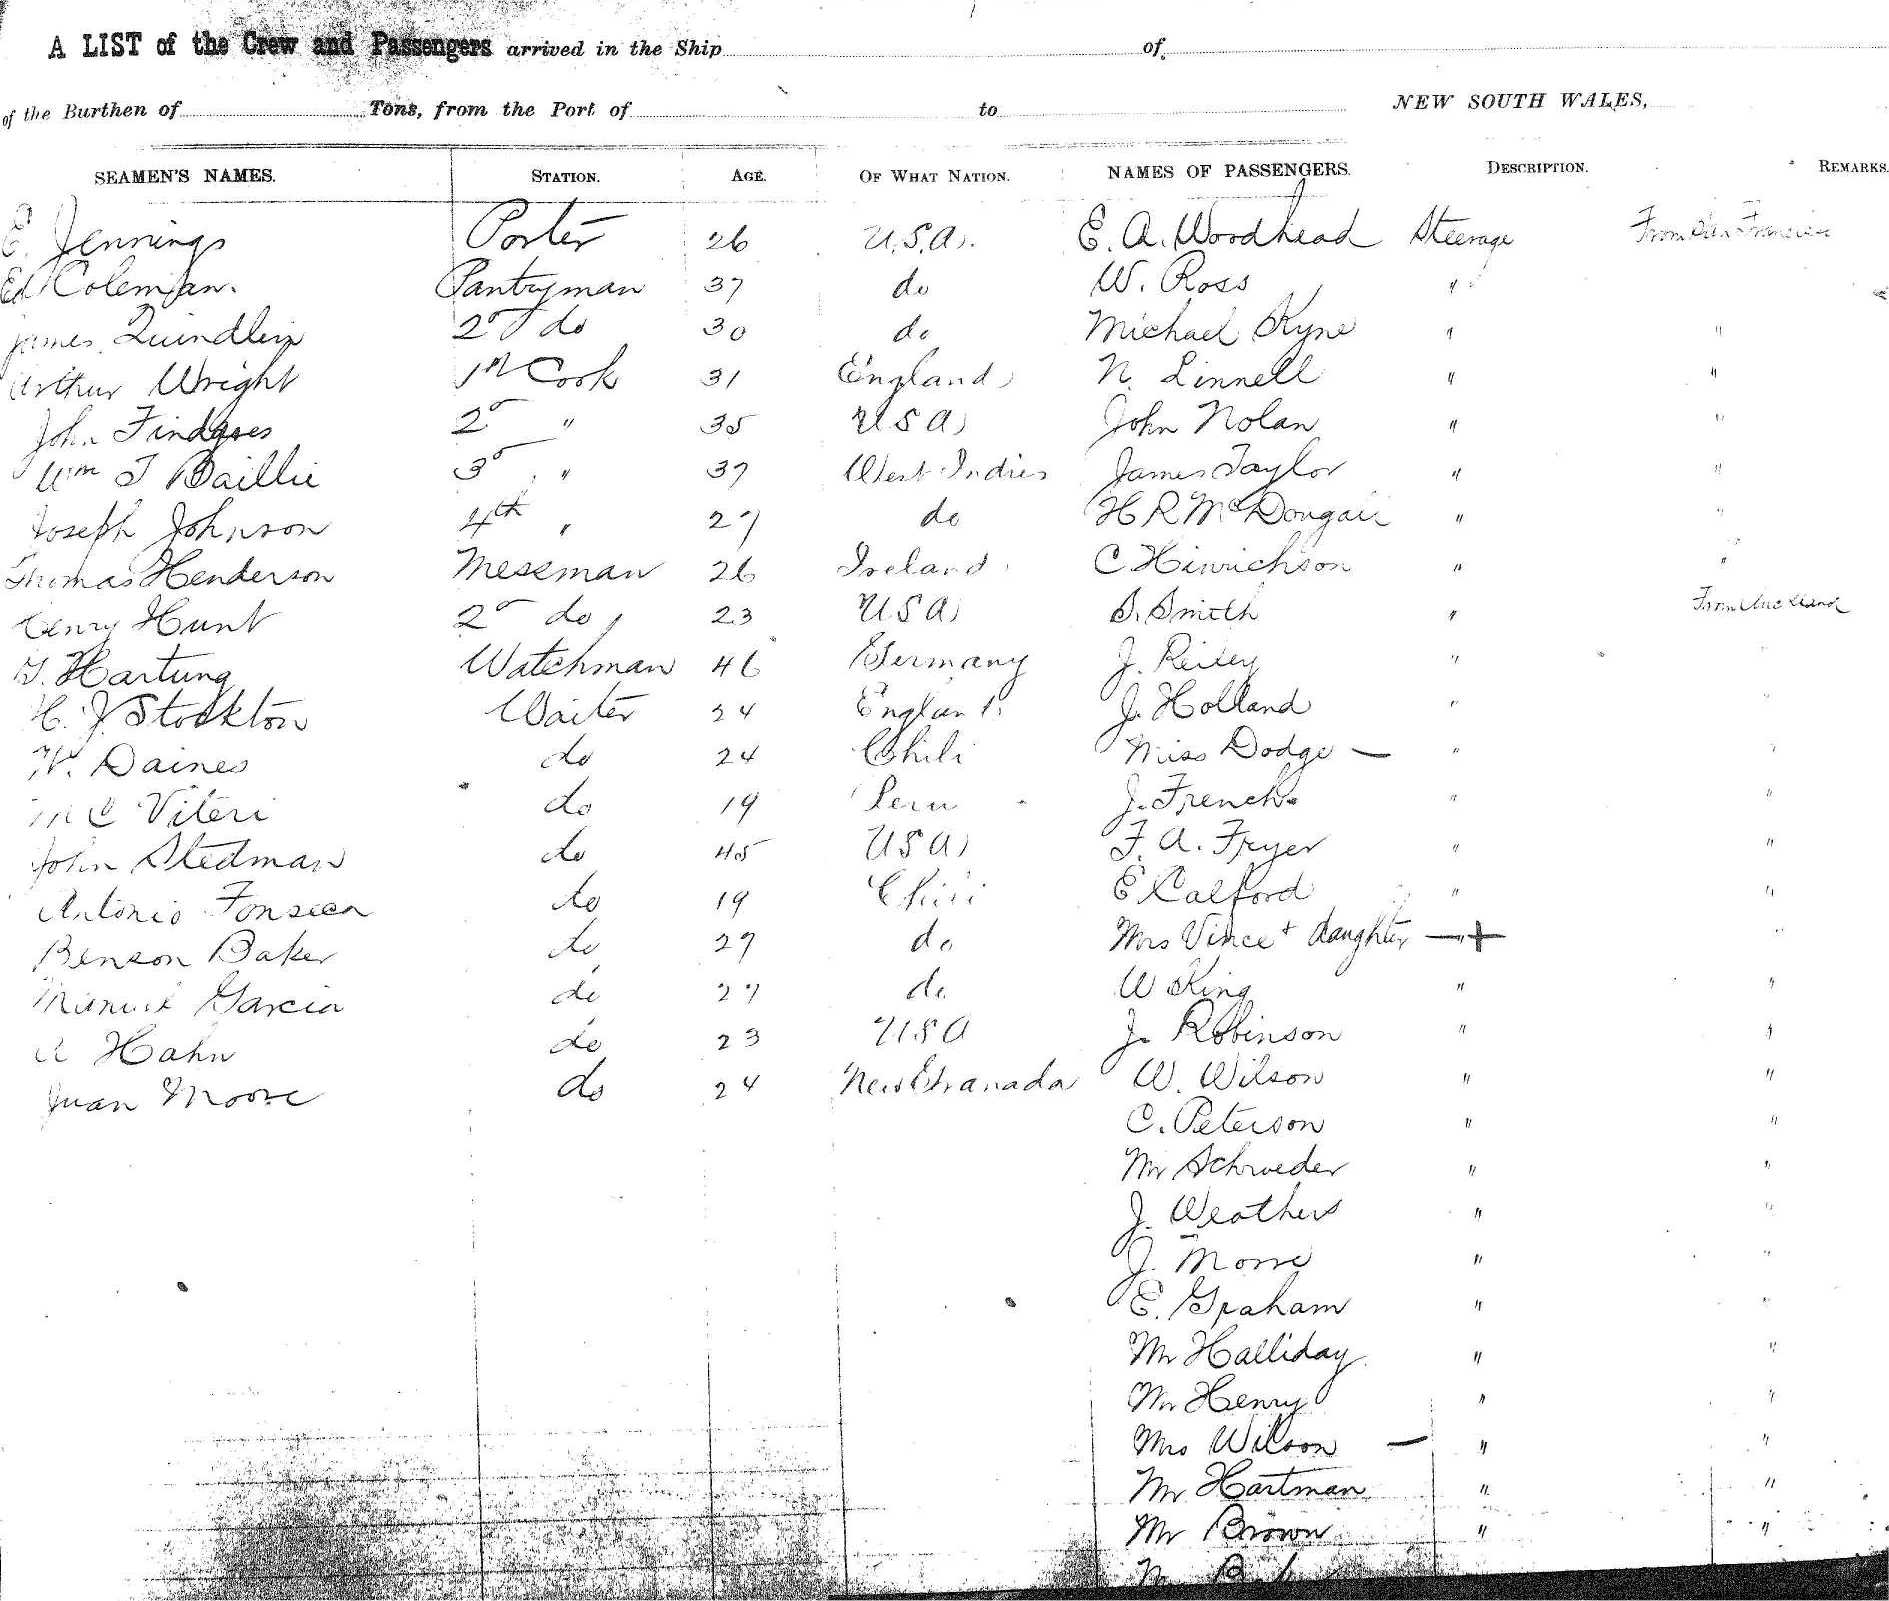 A LIST of the Crew and Passengers arrived in the Ship of
of the Burthen of Tons, from the Port of to NEW SOUTH WALES,
SEAMEN'S NAMES. STATION. AGE. OF WHAT NATION. NAMES OF PASSENGERS. DESCRIPTION. REMARKS.
E. Jennings Porter 26 U.S.A. E. A. Woodhead Steerage From San Francisco
Ed Coleman. Pantryman 37 do W. Ross "
James Quindlein 2d do 30 do Michael Kyne " "
Arthur Wright 1st Cook 31 England N. Linnell " "
John Findgres 2d " 35 USA John Nolan " "
Wm T Baillie 3d " 37 West Indies James Taylor " "
Joseph Johnson 4th " 27 do H R McDougall " "
Thomas Henderson Messman 26 Ireland C Hinrichson " "
Henry Hunt 2d do 23 USA S. Smith " From Auckland
Hartung Watchman 46 Germany J. Reiley " "
H. J. Stockton Waiter 24 England J. Holland " "
W. Daines do 24 Chili Miss Dodge — " "
M C Viteri do 19 Peru J. French " "
John Stedman do 45 USA F. A. Fryer " "
Antonio Fonseca do 19 Chili E Calford " "
Benson Baker do 27 do Mrs Vince + daughter — " + "
Manuel Garcia do 27 do W King " "
A Hahn do 23 USA J. Robinson " "
Juan Moore do 24 New Granada W. Wilson " "
C. Peterson " "
Mr Schroeder " "
J. Weathers " "
J. Morse " "
E. Graham " "
Mr Halliday " "
Mr Henry " "
Mrs Wilson — " "
Mr Hartman " "
Mr Brown " "